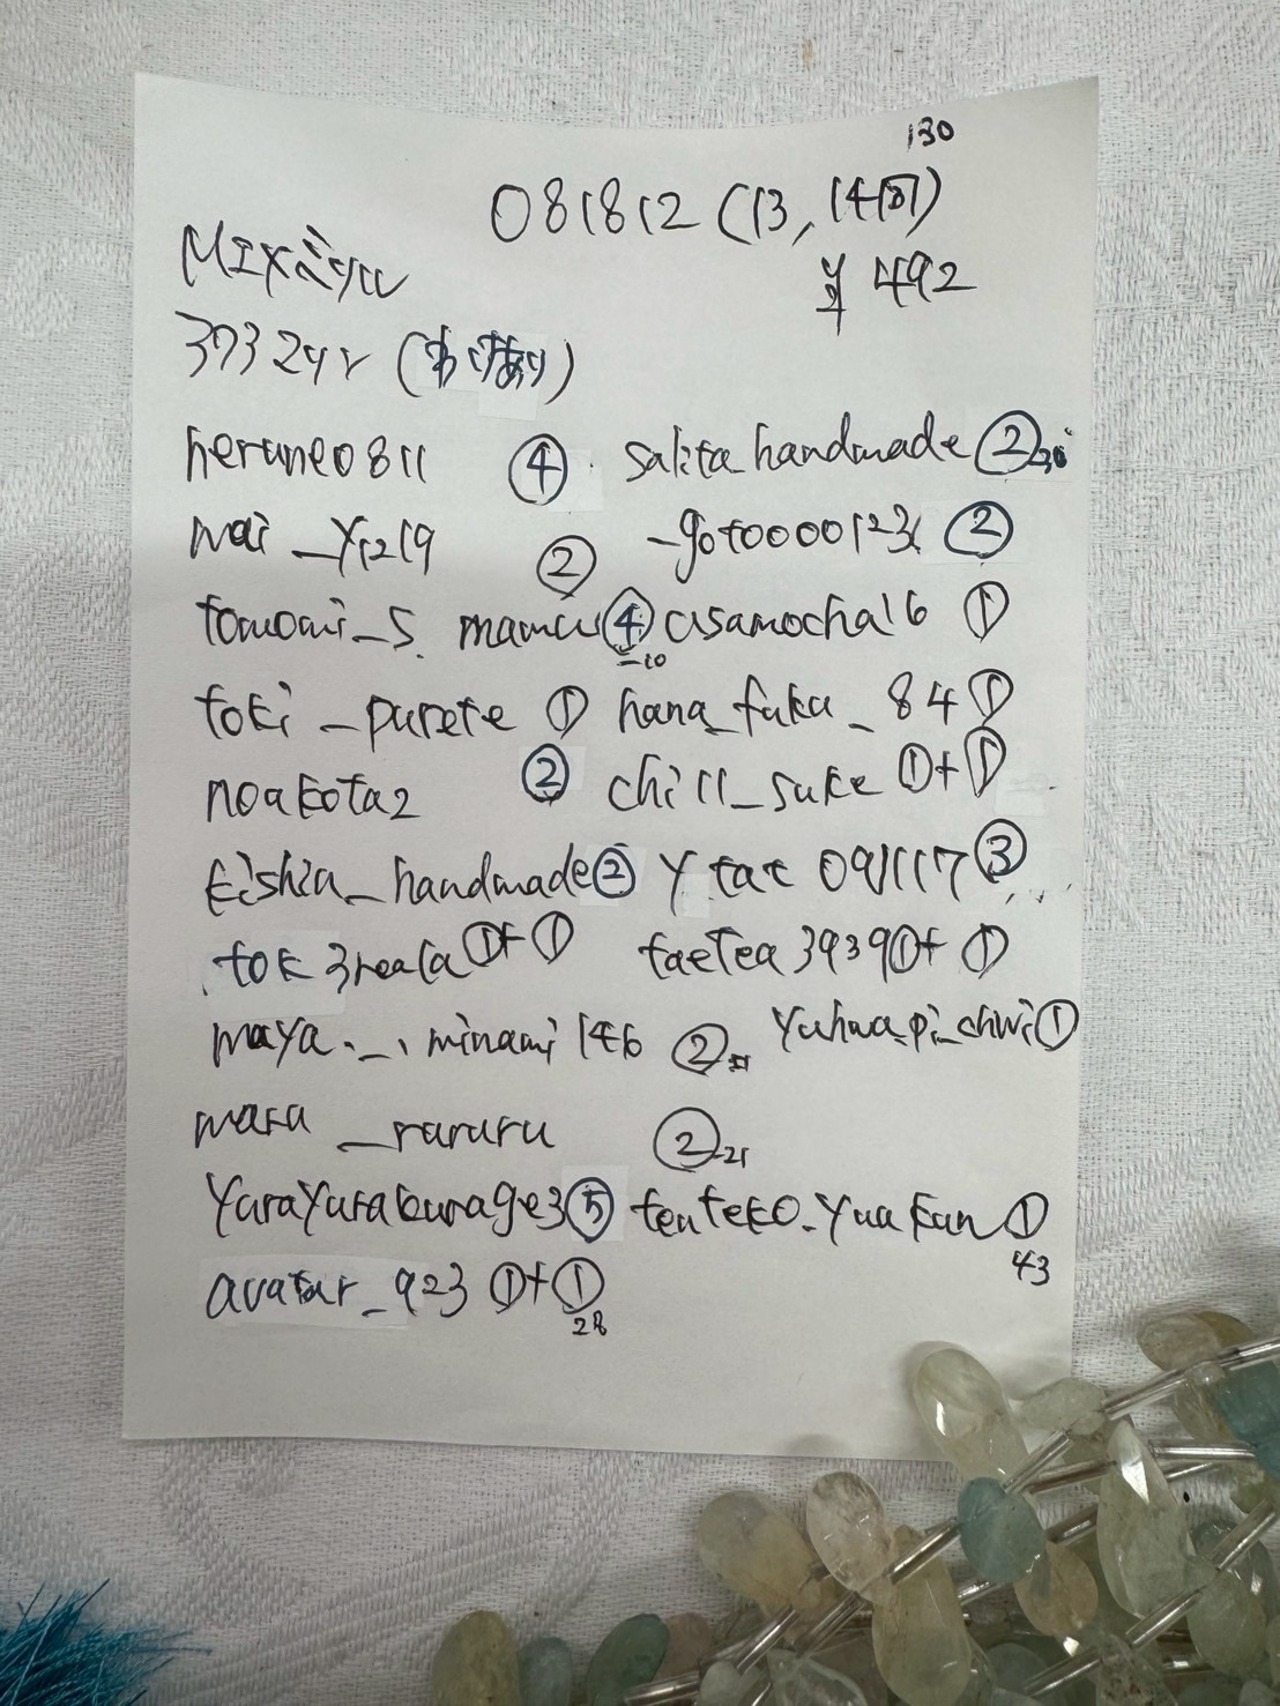 130
081812 (13,14時)
MIXミックス
¥492
3732yr (わけあり)
herune0811 ④ salita_handmade ②-30
mai_y1219 ② _goto0000123 ②
tomomi_s.mamiu ④-10 asamocha16 ①
toki_purete ① hana_fuku_84 ①
noakota2 ② chill_suke ①+①
kishia_handmade ② y tat 091117 ③
tok3reala ①+① taetea3939 ①+①
maya._.minami146 ② yuhua.pi_chwi ①
mara_raruru ②-21
yurayurakurage3 ⑤ tenteko.yuakun ①
43
avatar_923 ①+①
28